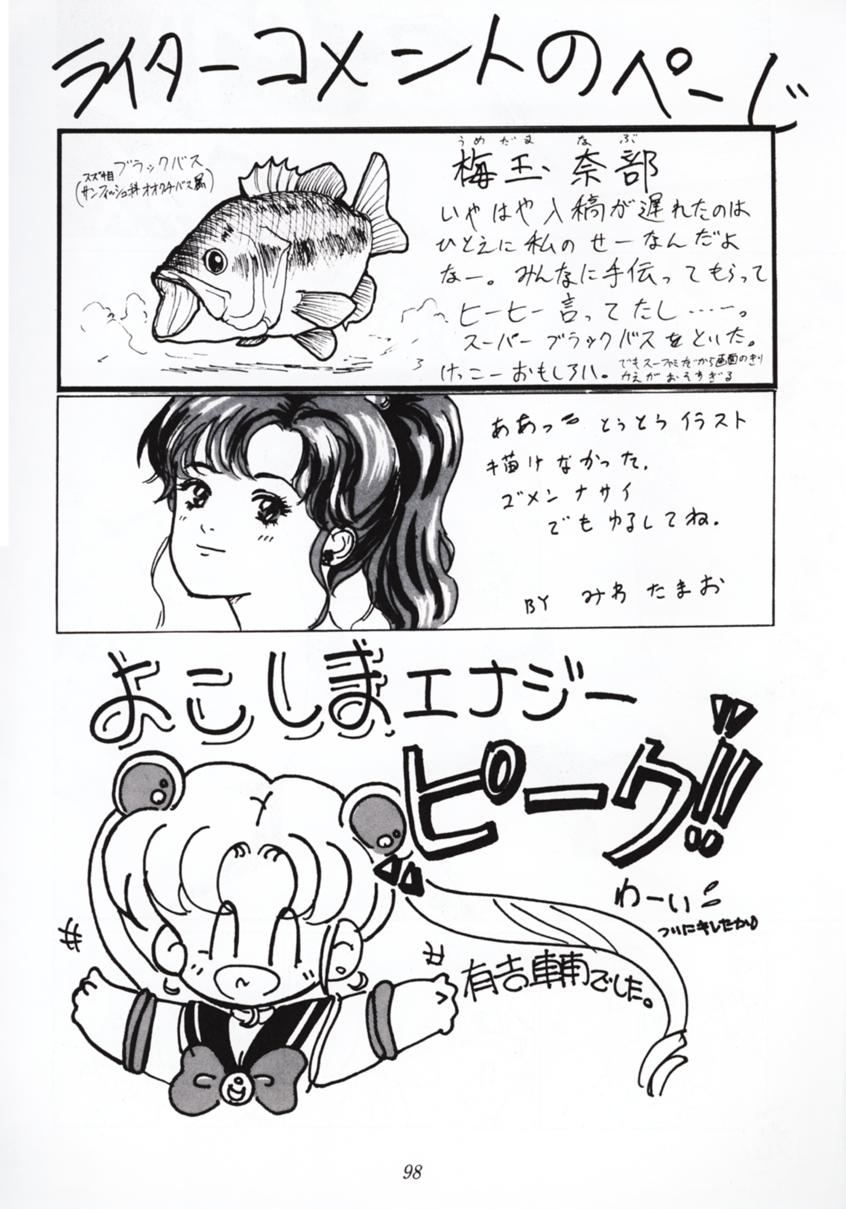 ライターコメントのページ
スズキ目 ブラックバス
(サンフィッシュ科オオクチバス属)
うめだま なぶ
梅玉 奈部
いやはや入稿が遅れたのは
ひとえに私のせーなんだよ
なー。みんなに手伝ってもらって
ヒーヒー言ってたし……。
スーパーブラックバスをといた。
けっこーおもしろい。でもスーファミだから画面のきり
かえがおそすぎる
ああっ とうとうイラスト
描けなかった。
ゴメンナサイ
でもゆるしてね。
BY みわ たまお
よこしまエナジー
ピーク!!
わーい
ついにキレたか♪
有吉 でした。
98